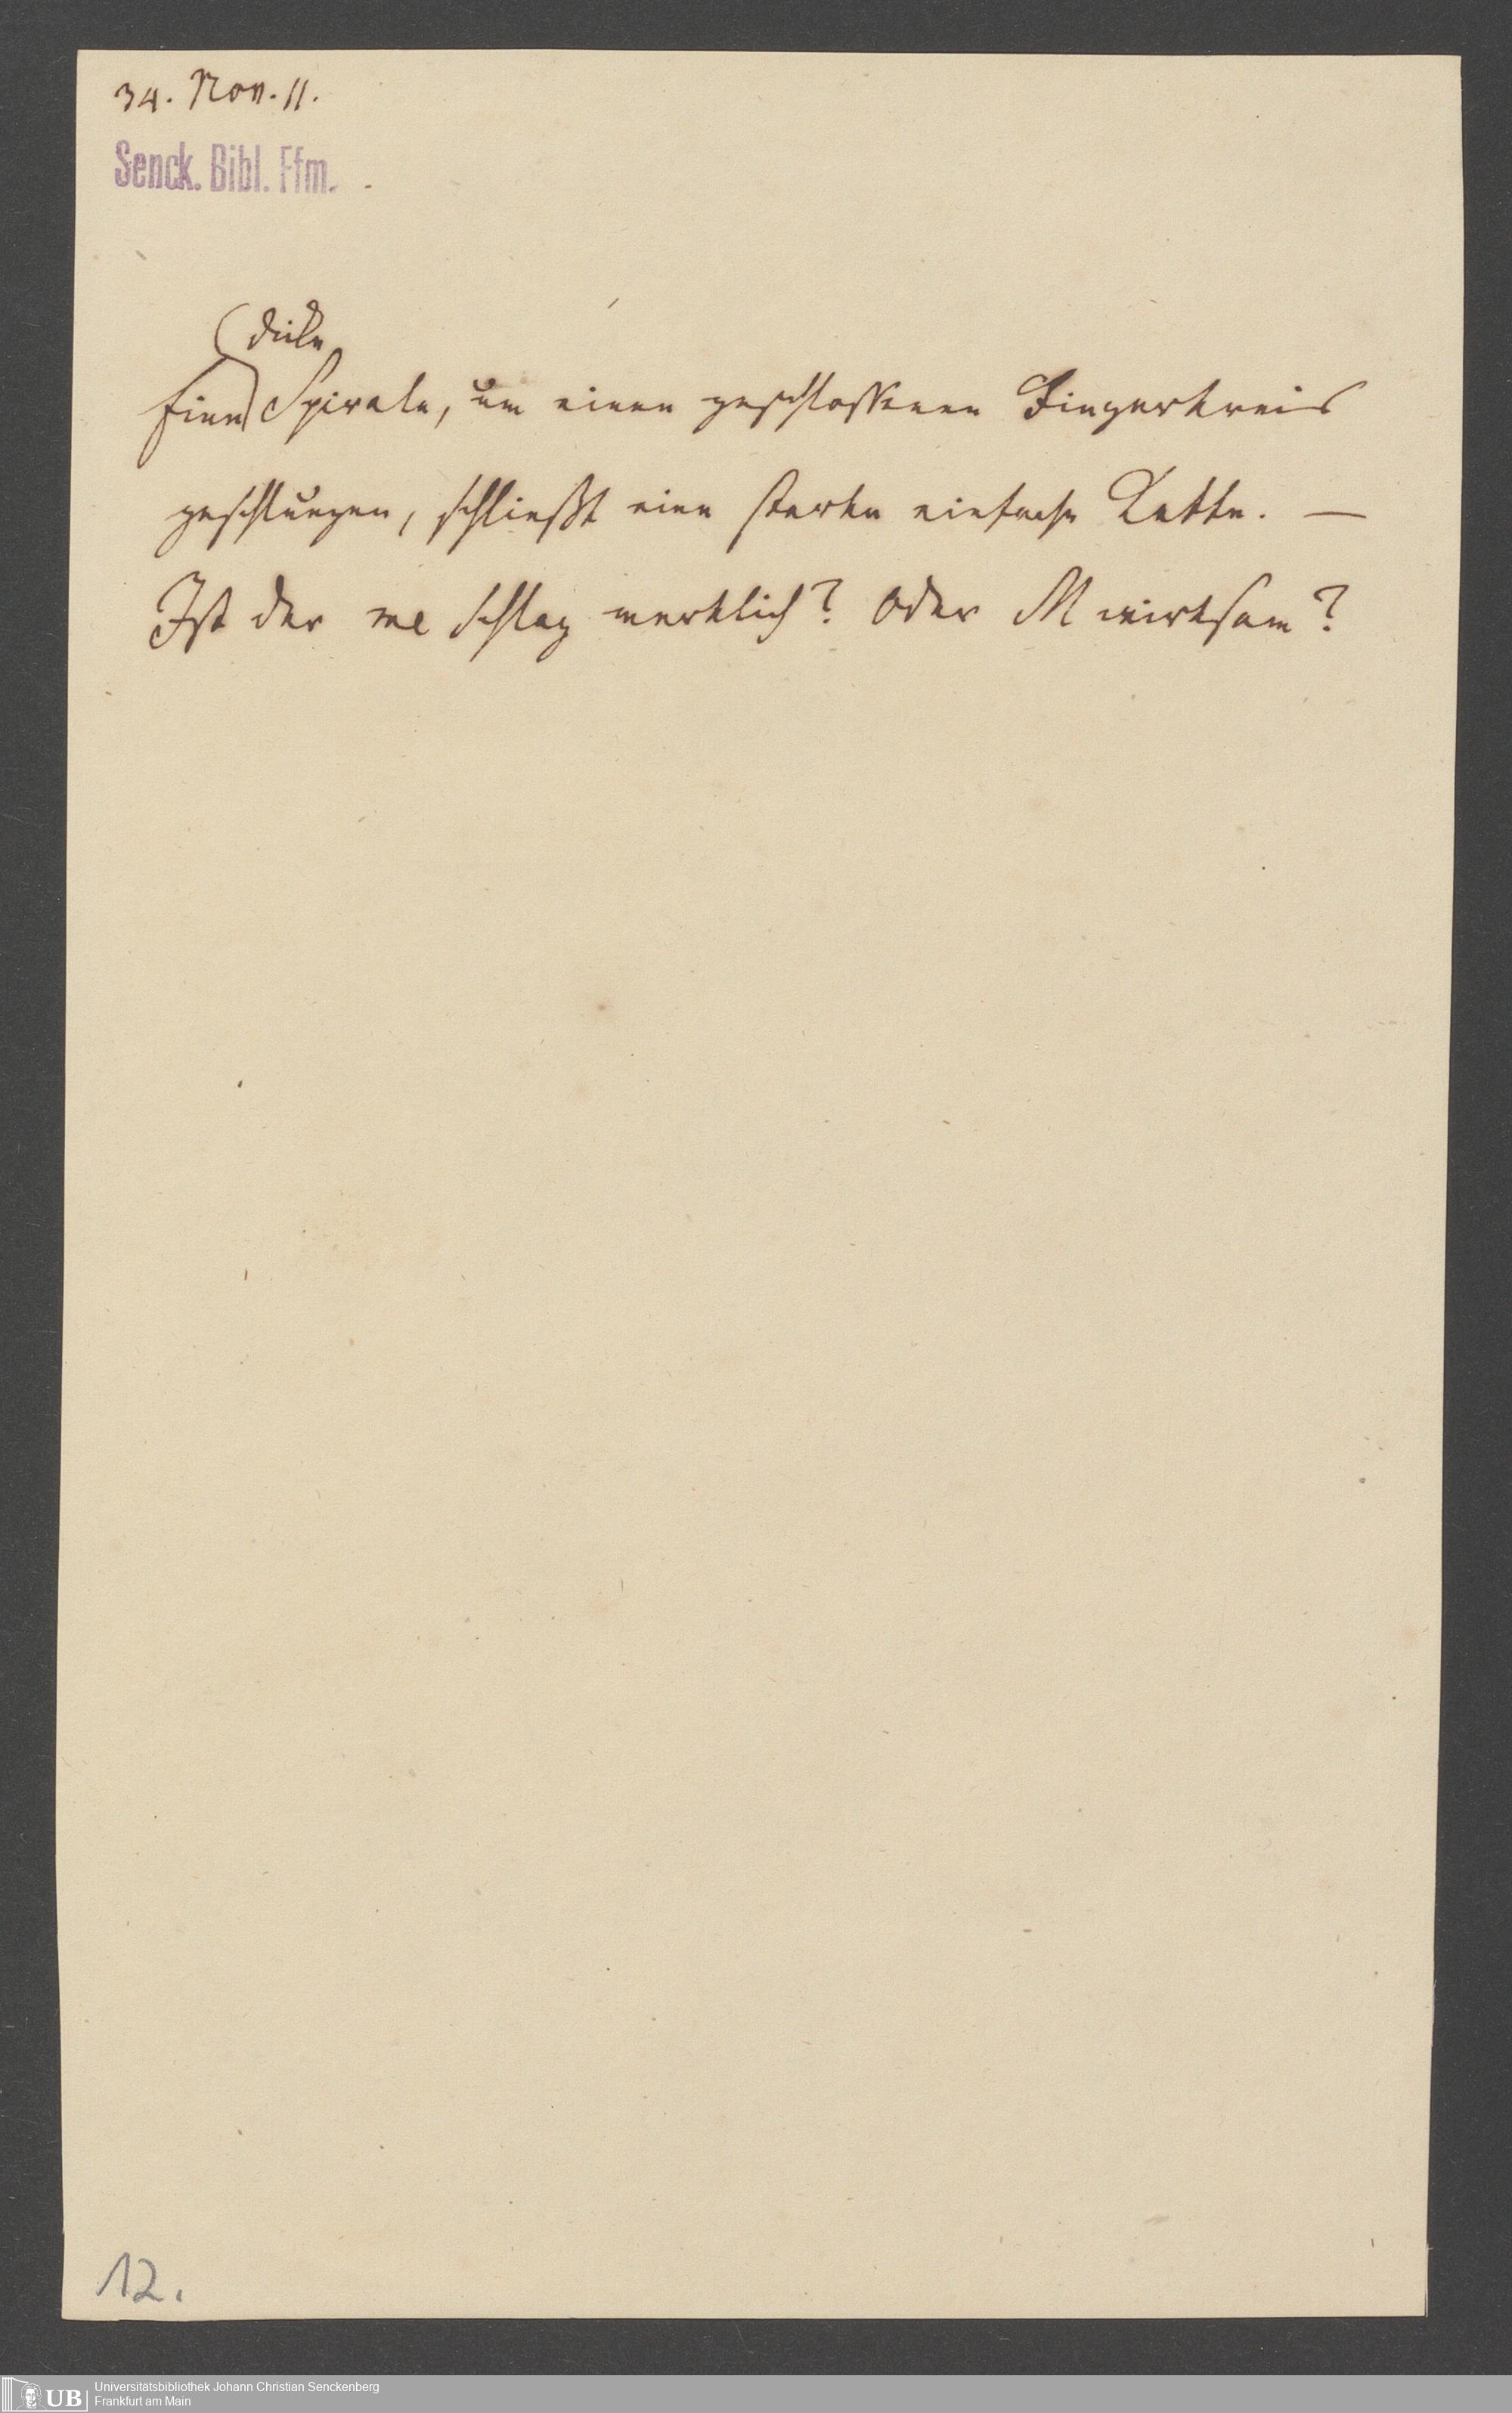 34. Nov. 11.
Senck. Bibl. Ffm.
dicke
Eine Spirale, um einen geschlossenen Fingerkreis
geschlungen, schließt eine starke einfache Kette. —
Ist der me Schlag merklich? Oder M wirksam?
12.
UB Universitätsbibliothek Johann Christian Senckenberg
Frankfurt am Main